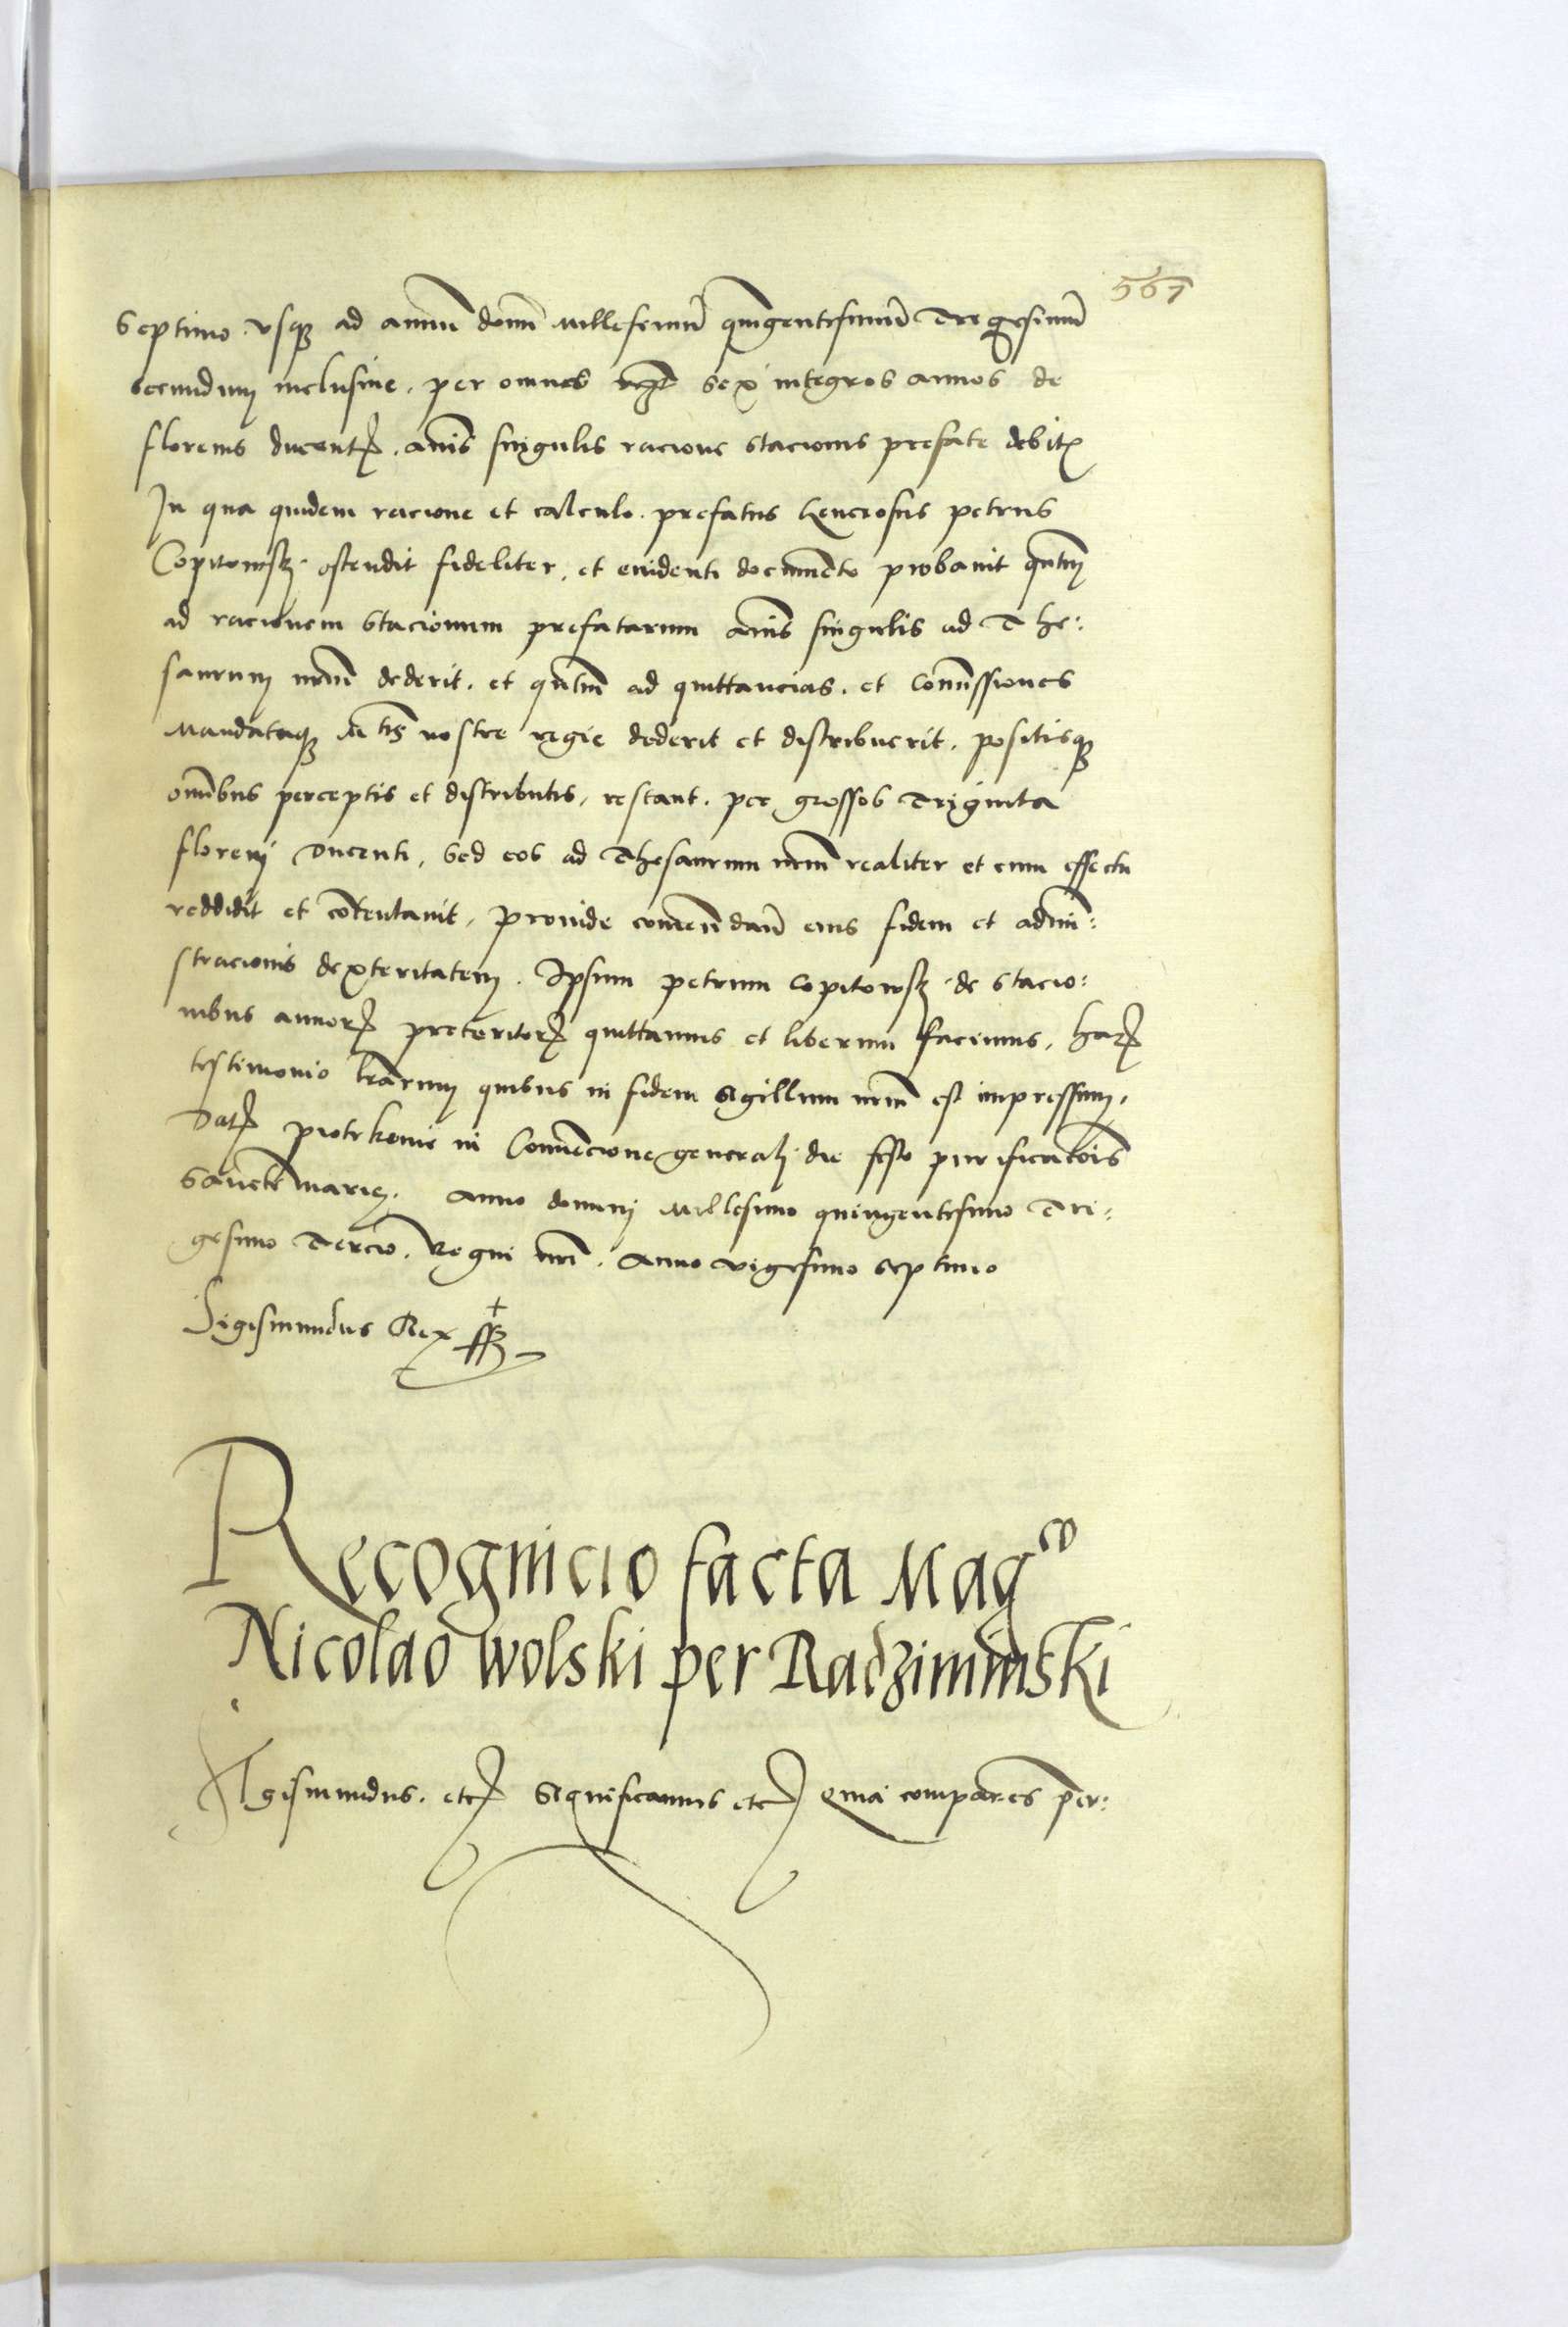 567
Septimo. vsq ad annu domi Millesimu quingentesimu Tregesimu
secundum inclusiue. per omnes sex integros annos de
florenis ducent. anis singulis racione stacionis prefate debit
In qua quidem racione et calculo. prefatus Generosus petrus
Copitowsk. ostendit fideliter, et euidenti documeto probauit qntum
ad racionem stacionum prefatarum anis singulis ad The:
saurum nrum dederit. et qntum ad quittancias. et Comissiones
Mandataq M tis nostre regie dederit et distribuerit. positisq
omibus perceptis et distributis, restant. per grossos Triginta
florenj Ducenti, sed eos ad Thesaurum nrm realiter et cum effectu
reddidit et cotentauit, Prouide comendan eius fidem et admi:
stracionis dexteritatem. Ipsum petrum Copitowsk de stacio:
nibus annor preteritor quittamus et liberum facimus, har
testimonio lrarum quibus in fidem sigillum nrm est impressum.
Dat piotrkouie in Conuecione generalj die festo purificatois
Sancte Marie. Anno dominj Millesimo quingentesimo Tri:
gesimo Tercio. Regni nri. Anno vigesimo septimo
Sigismundus Rex ss
Recognicio facta Mag co
Nicolao Wolski per Radziminski
Sigismundus. etc Significamus etc Quia comparens per: